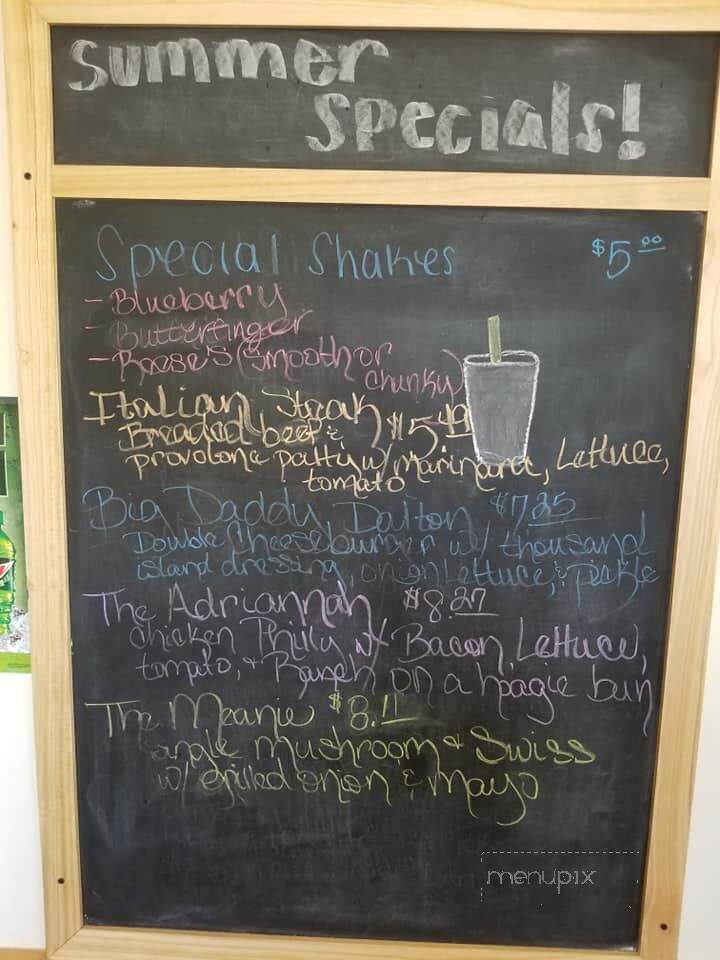 Summer
Specials!
Special Shakes $5.00
- Blueberry
- Butterfinger
- Reese's (Smooth or
chunky)
Italian Steak $5.49
Breaded beef &
provolone patty w/ Marinara, Lettuce,
tomato
Big Daddy Dalton $7.25
Double Cheeseburger w/ thousand
island dressing, onion, lettuce, & pickle
The Adriannah $8.27
Chicken Philly w/ Bacon, Lettuce,
tomato, & Ranch on a hoagie bun
The Meanie $8.11
single mushroom & Swiss
w/ grilled onion & mayo
menupix